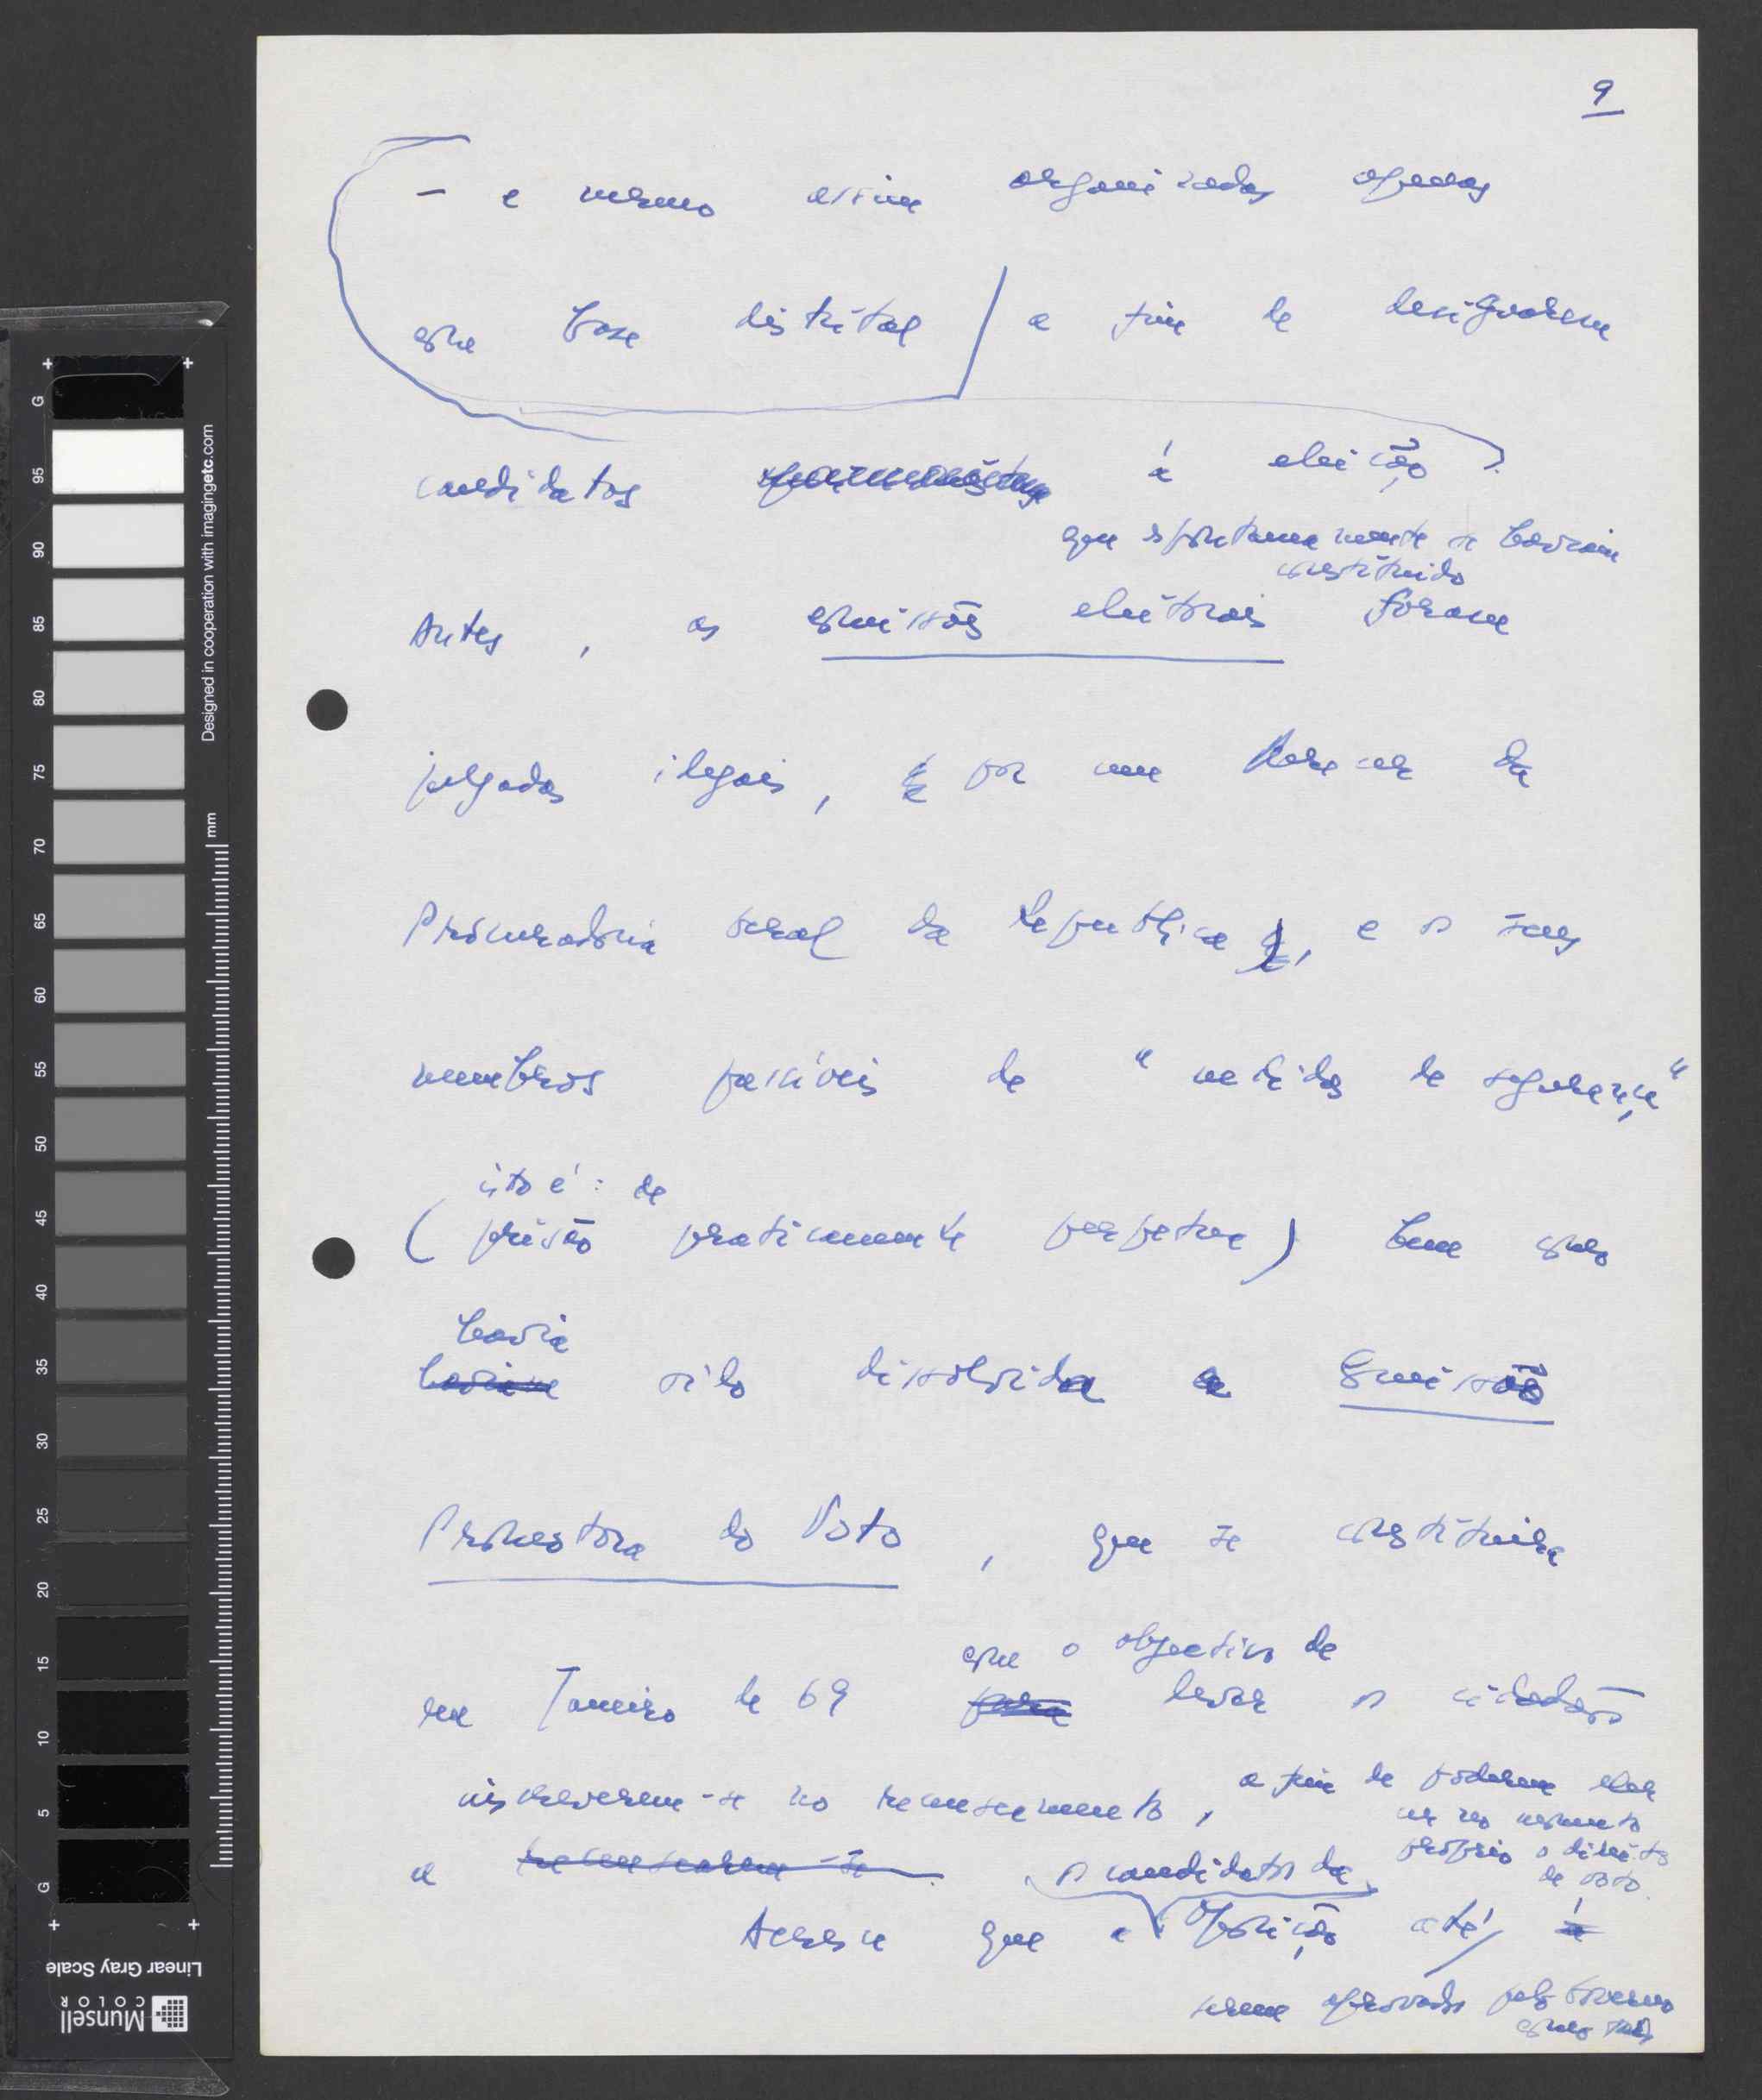 9
– e mesmo assim organizadas apenas
em base distrital / a fim de designarem
candidatos à eleição
que espontaneamente se haviam
constituído
Antes, as comissões eleitorais foram
julgadas ilegais, por um Parecer da
Procuradoria Geral da República, e os seus
membros passíveis de "medidas de segurança"
isto é: de
(prisão praticamente perpétua) bem como
havia
haviam sido dissolvida a Comissão
Promotora do Voto, que se constituira
com o objectivo de
em Janeiro de 69 para levar os cidadãos
inscreverem-se no recenseamento, a fim de poderem
no momento
próprio o direito
de voto.
a recensearem-se
os candidatos da
Acresce que a Oposição até à
serem aprovados pelo Governo
como tais